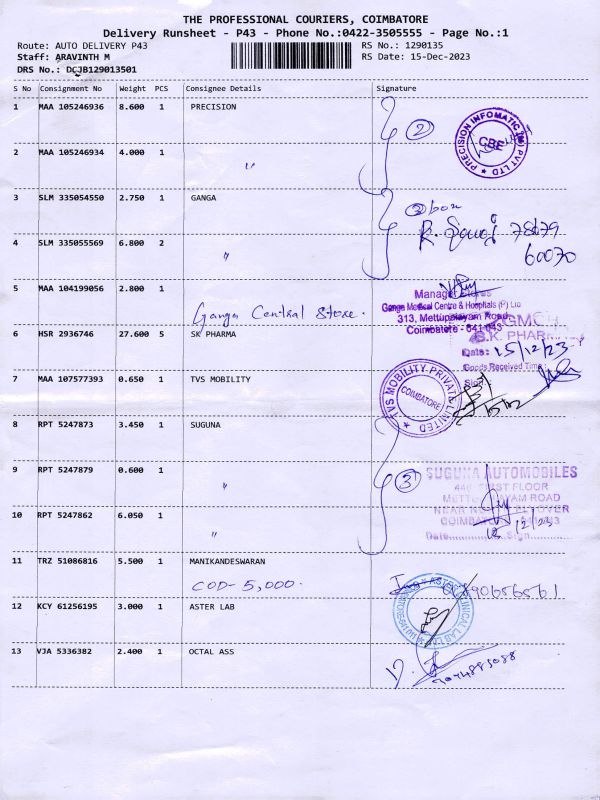 THE PROFESSIONAL COURIERS, COIMBATORE
Delivery Runsheet - P43 - Phone No.:0422-3505555 - Page No.:1
Route: AUTO DELIVERY P43
RS No.: 1290135
Staff: ARAVINTH M
RS Date: 15-Dec-2023
DRS No.: DCJB129013501
S No Consignment No Weight PCS Consignee Details Signature
1 MAA 105246936 8.600 1 PRECISION
2
PRECISION INFOMATIC PVT LTD
CBE
2 MAA 105246934 4.000 1 "
3 SLM 335054550 2.750 1 GANGA
2 box
4 SLM 335055569 6.800 2 "
60070
5 MAA 104199056 2.800 1
Ganga Central Store.
Ganga Medical Centre & Hospitals (P) Ltd
313, Mettupalayam Road
Coimbatore - 641 043
6 HSR 2936746 27.600 5 SK PHARMA
GMCH
S.K. PHAR
Date: 15/12/23
Goods Received Time
Sign
7 MAA 107577393 0.650 1 TVS MOBILITY
TVS MOBILITY PRIVATE LIMITED
COIMBATORE
8 RPT 5247873 3.450 1 SUGUNA
9 RPT 5247879 0.600 1 "
3
SUGUNA AUTOMOBILES
FIRST FLOOR
10 RPT 5247862 6.050 1 "
11 TRZ 51086816 5.500 1 MANIKANDESWARAN
COD- 5,000.
12 KCY 61256195 3.000 1 ASTER LAB
13 VJA 5336382 2.400 1 OCTAL ASS